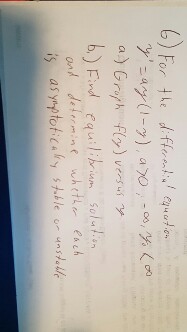 6) For the differential equation
y' = ay(1-y), a>0, -∞<y₀<∞
a) Graph f(y) versus y
b) Find equilibrium solution
and determine whether each
is asymptotically stable or unstable